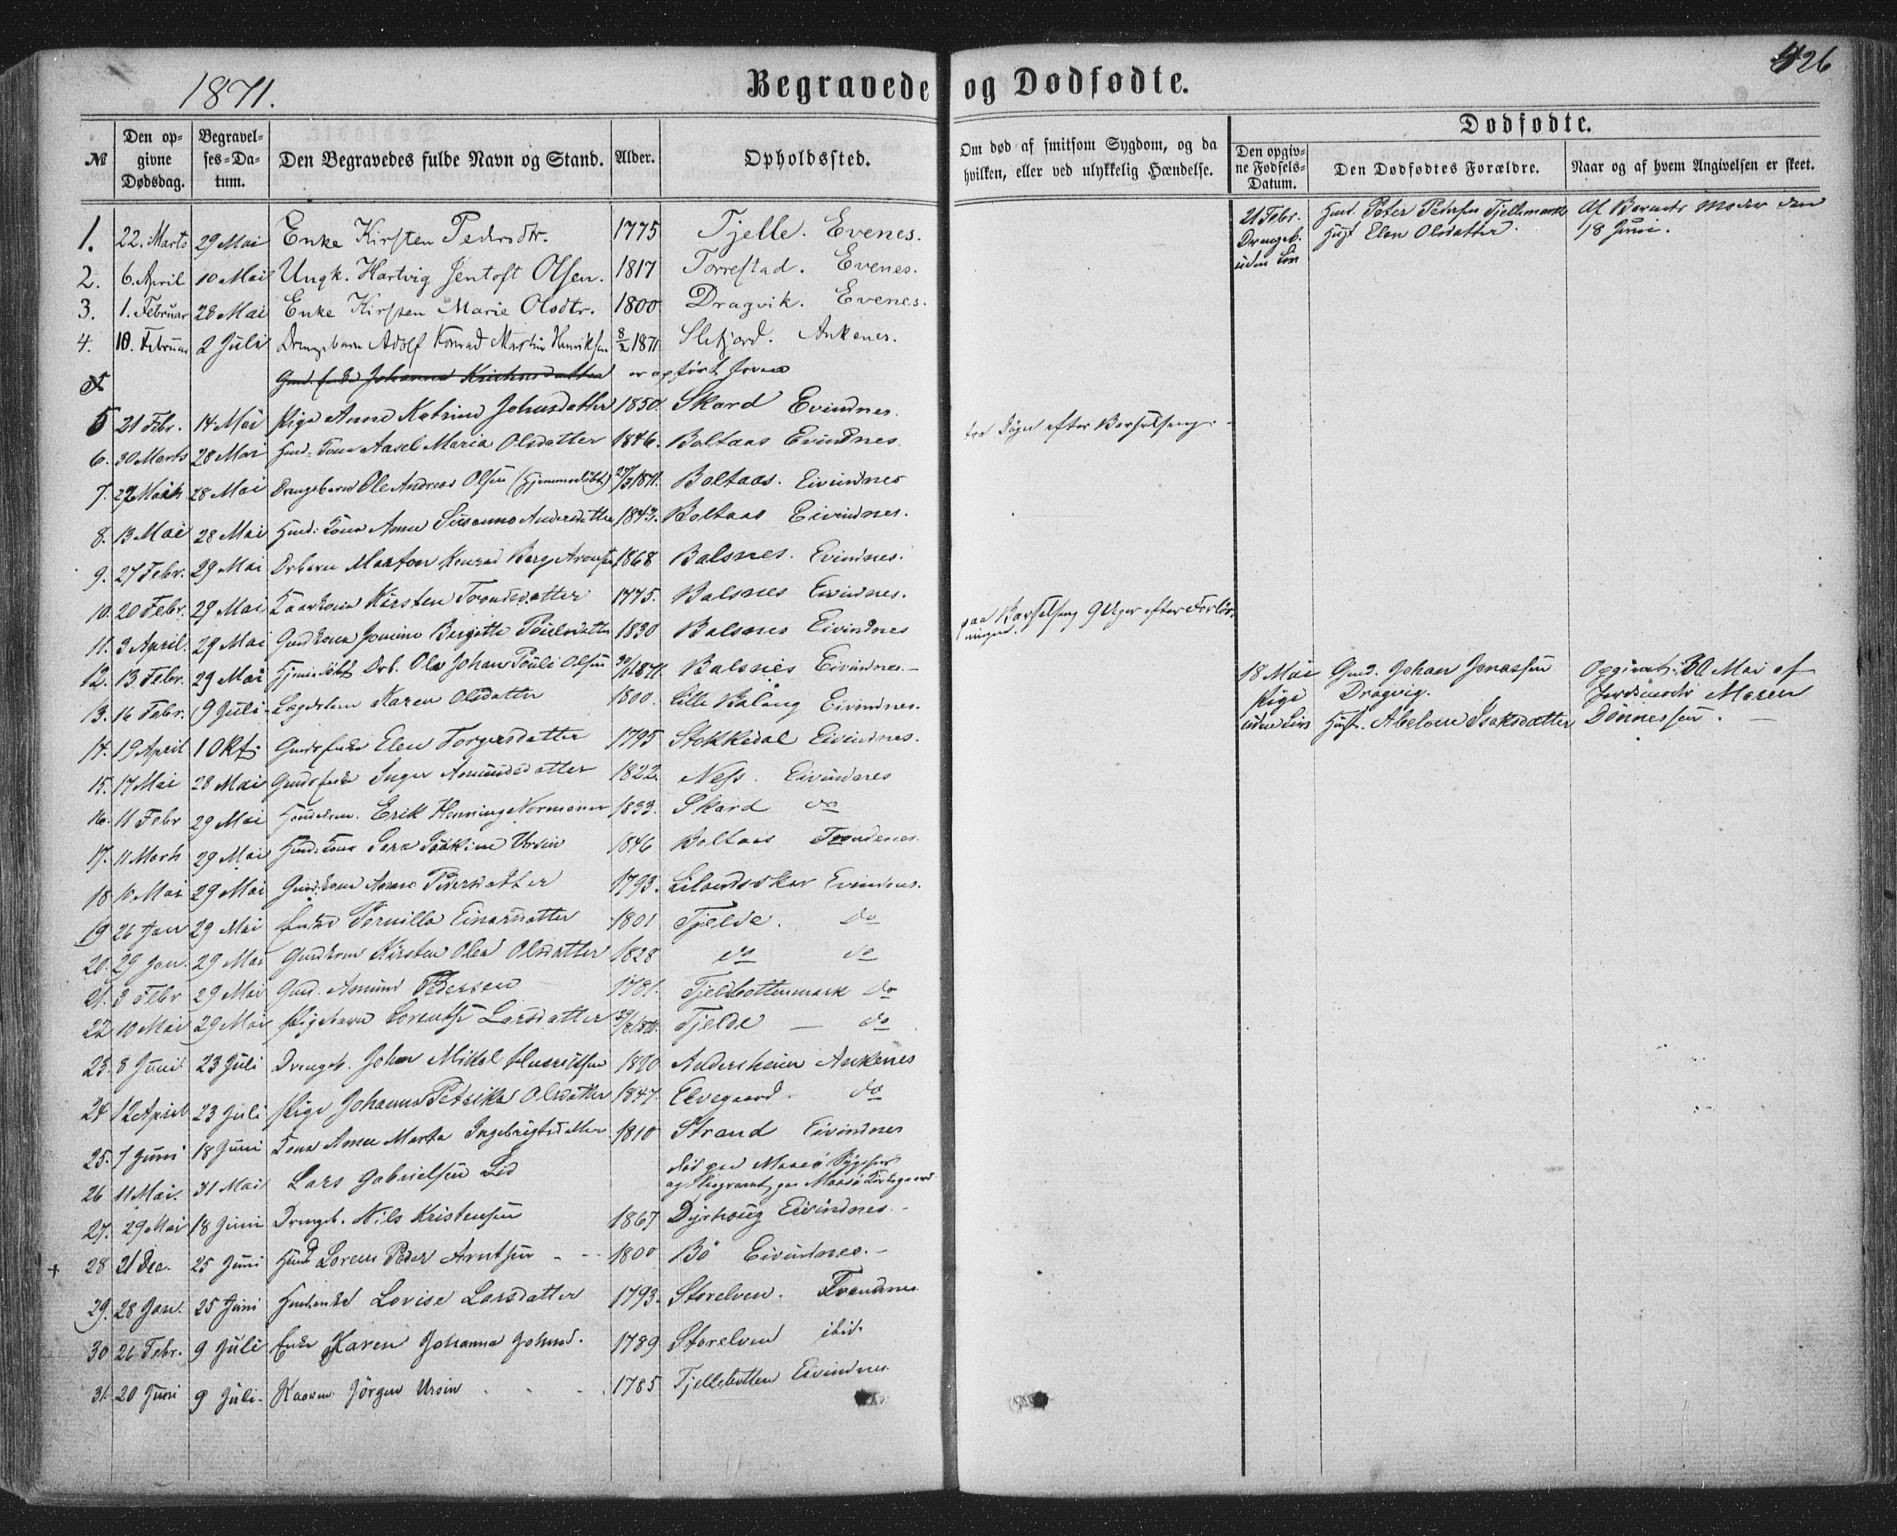 1871.
Begravede og Dødfødte.
426
№ Den opgivne Dødsdag. Begravelses-Datum. Den Begravedes fulde Navn og Stand. Alder. Opholdssted. Om død af smitsom Sygdom, og da hvilken, eller ved ulykkelig Hændelse. Dødfødte. Den opgivne Fødsels-Datum. Den Dødfødtes Forældre. Naar og af hvem Angivelsen er skeet.
1. 22. Marts 29 Mai Enke Kirsten Pedersdtr. 1775 Tjelle. Evenes.
21 Febr. Drengeb. uden Peter Pedersen Tjellemark Elen Olsdatter. Af Barnets Moder den 18 Juni.
2. 6. April 10 Mai Ungk. Hartvig Jentoft Olsen. 1817 Torrestad. Evenes.
3. 1. Februar 28 Mai Enke Kirsten Marie Olsdtr. 1800 Dragvik. Evenes.
4. 10. Februar 2 Juli Drengebarn Adolf Konrad Martin Henriksen 8/2 1871 Slekjord. Ankenes.
Johanna er opført
5 21 Febr. 14 Mai Pige Anne Katrine Johnsdatter 1850. Skard Evindnes.
6. 30 Marts 28 Mai Kona Aasel Maria Olsdatter 1846. Boltaas Evindnes. efter Barselseng.
7. 28 Mai Drengebarn Ole Andreas Olsen (hjemmedøbt) 27/3 1871. Boltaas. Eivindnes
8. 13 Mai 28 Mai Kona Anne Susanna Andersdatter 1843. Boltaas Eivindnes.
9. 27 Febr. 29 Mai Drbarn Marton Konrad Berg 1868 Balsnes. Evindnes.
10. 20 Febr. 29 Mai Kaarkona Kirsten Trondsdatter 1775. Balsnes Eivindnes.
11. 3 April. 29 Mai Gaardkona Jomine Bergitte Poulsdatter 1830 Balsnes Eivindnes paa Barselseng 9 Uger efter Forløsningen.
12. 13. Febr. 29 Mai Hjemmedøbt Drb. Ole Johan Pouli Olsen 30/1 1871. Balsnes Eivindnes.
18 Mai Pige uden Johan Jonassen Dragvig. Abelone Isaksdatter Opgivet 30 Mai af Jordmoder Maren Dønnessen.
13. 16 Febr. 9 Juli Lægdslem Karen Olsdatter 1800. Lille Balang Eivindnes.
14. 19 April 1 Okt. Elen Torgersdatter 1795 Stokkedal Eivindnes.
15. 17 Mai 28 Mai Inger Asmundsdatter 1822. Ness. Eivindnes
16. 11 Febr 29 Mai Erik Henning Normann 1833. Skard do
17. 11 Marts 29 Mai Kona Sara Joakime Ursin 1846 Boltaas Trondenes.
18 10 Mai 29 Mai Kona Anne Pedersdatter 1793. Lilandsskar Evindnes.
19 26 Jan 29 Mai Enke Pernilla Einarsdatter 1801 Tjelde. do
20. 29 Jan. 29 Mai Kirsten Olea Olsdatter 1828 do do
21. 3 Febr 29 Mai Gmd. Asmund Pedersen 1781. Tjeldbottenmark do
22 10 Mai 29 Mai Pigebarn Lorentse Larsdatter Tjelde — do
23. 8 Juni 23 Juli Drengeb. Johan Mikal Henriksen Andersheim Ankenes
24 12 April 23 Juli Pige Johanna Petrika Olsdatter 1847. Elvegaard do
25. 7 Juni 18 Juni Kona Anne Marta Ingebrigtsdatter 1810 Strand Eivindnes
26 11 Mai. 31 Mai Lars Gabrielsen Lid død paa Maasø og begravet paa Maasø Kirkegaard
27. 29 Mai 18 Juni Drengeb. Nils Kristensen 1867 Dyrhaug Eivindnes.
+ 28 21 Dec. 25 Juni Lorens Peder Arntsen 1800 Bö Eivindnes.
29. 28 Jan. 25 Juni Lovise Larsdatter 1793. Storelven. Trondnes
30 26 Febr. 9 Juli Enke Karen Johanna Johnsd. 1789 Storelven ibid.
31. 20 Juni 9 Juli. Jørgen Ursin 1785 Tjellebotten Eivindnes.